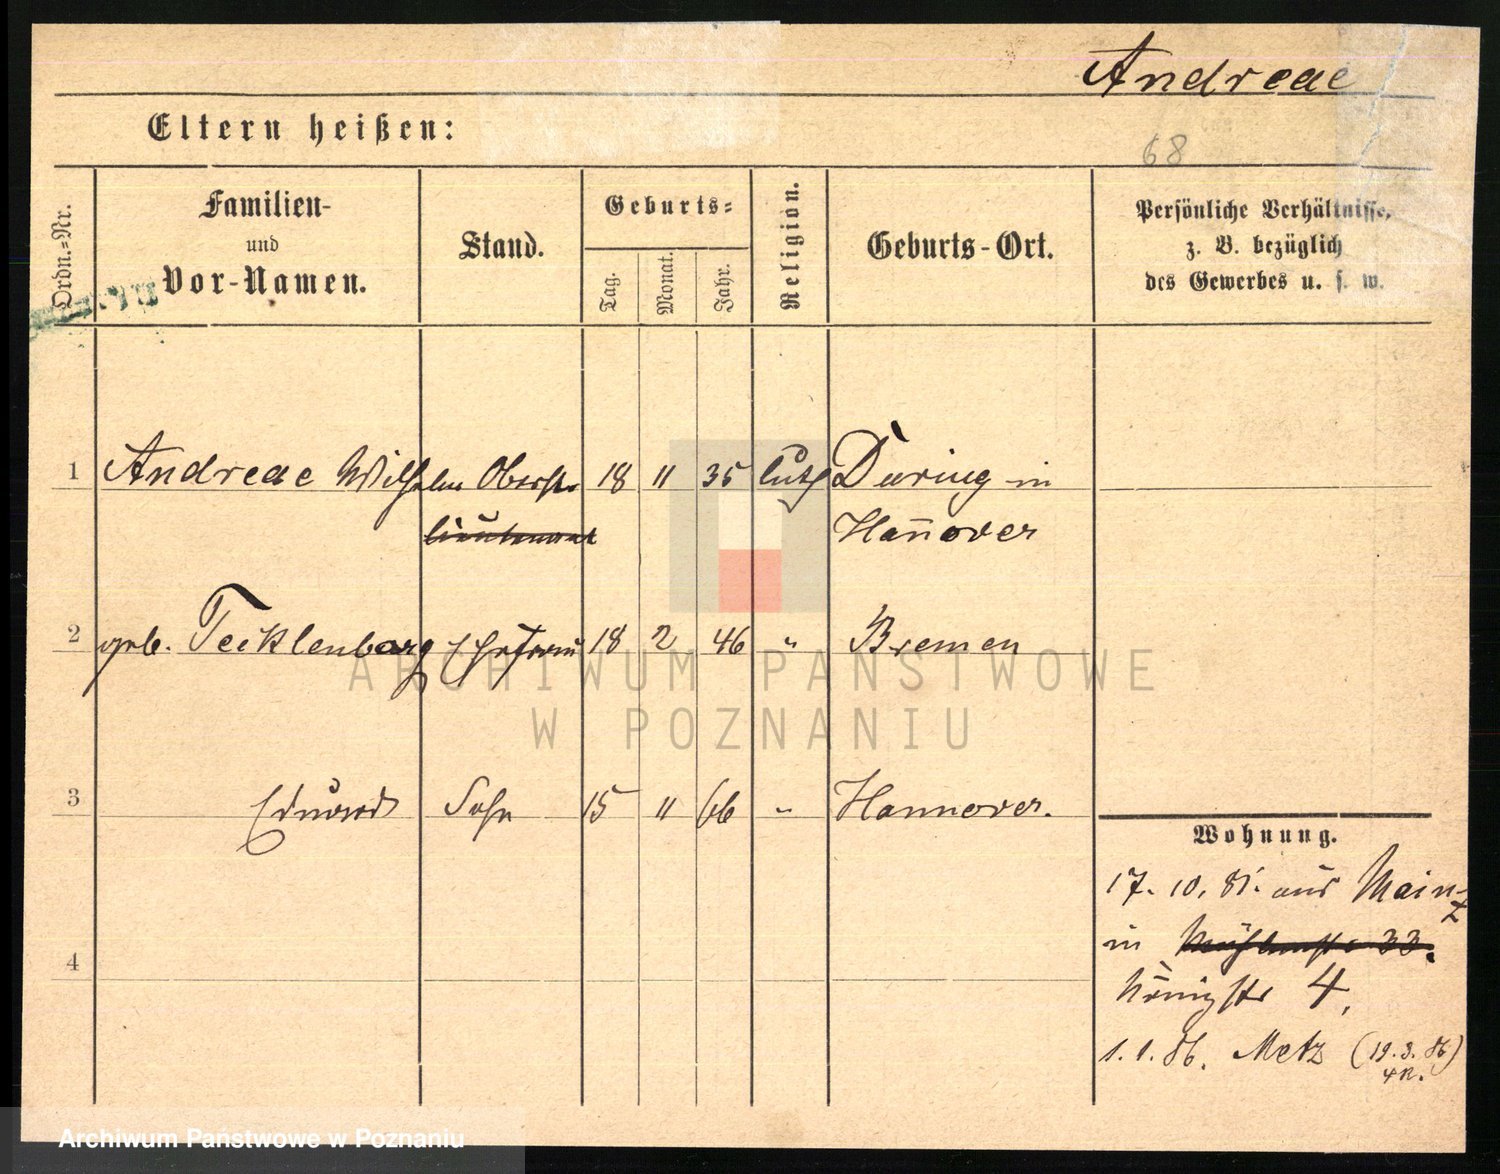 Andreae
Eltern heißen:
68
Ordn.=Nr.
Familien-
und
Vor-Namen.
Stand.
Geburts=
Tag.
Monat.
Jahr.
Religion.
Geburts-Ort.
Persönliche Verhältnisse,
z. B. bezüglich
des Gewerbes u. s. w.
1 Andreae Wilhelm Oberst 18 11 35 luth During in
lieutenant Hannover
2 geb. Tecklenborg Ehefrau 18 2 46 " Bremen
3 Eduard Sohn 15 11 66 " Hannover.
Wohnung.
17. 10. 81. aus Mainz
in Mühlenstr 33.
4
Königstr 4,
1. 1. 86. Metz (19. 3. 86)
ARCHIWUM PAŃSTWOWE
W POZNANIU
Archiwum Państwowe w Poznaniu